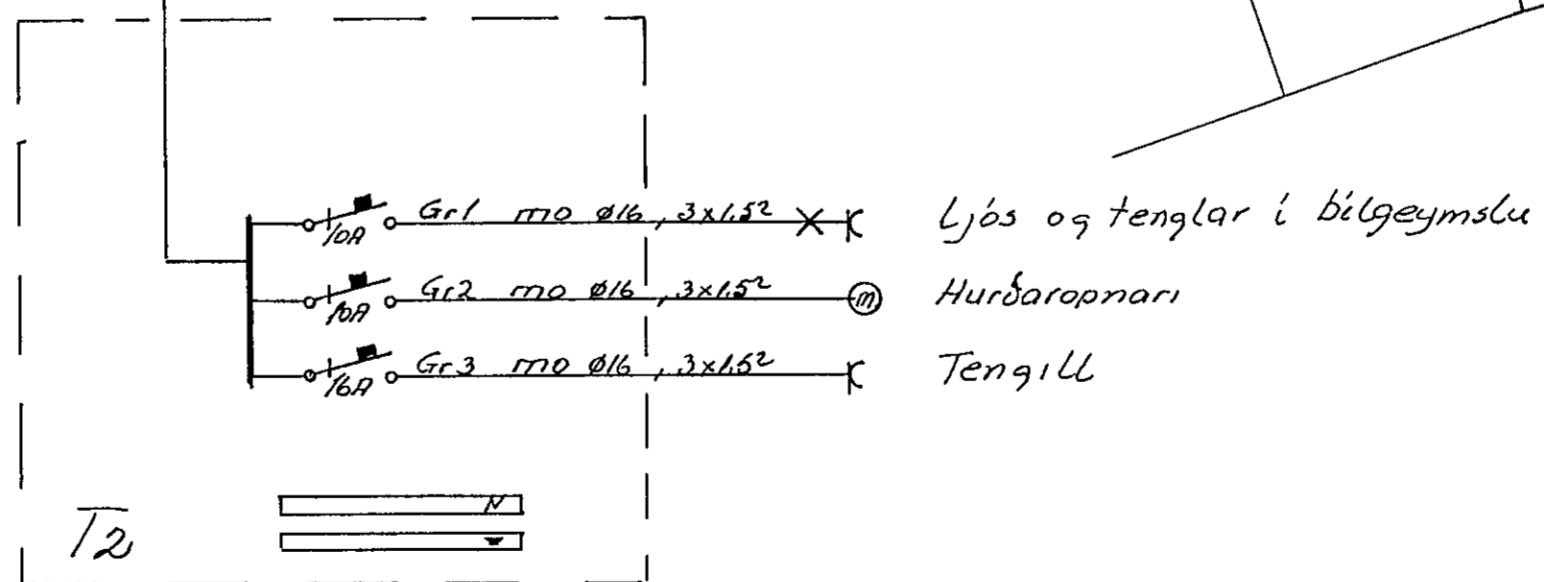 Gr1 mo ø16, 3x1.5² Ljós og tenglar í bílgeymslu
10A
Gr2 mo ø16, 3x1.5² m Hurðaropnari
10A
Gr3 mo ø16, 3x1.5² Tengill
16A
N
T2